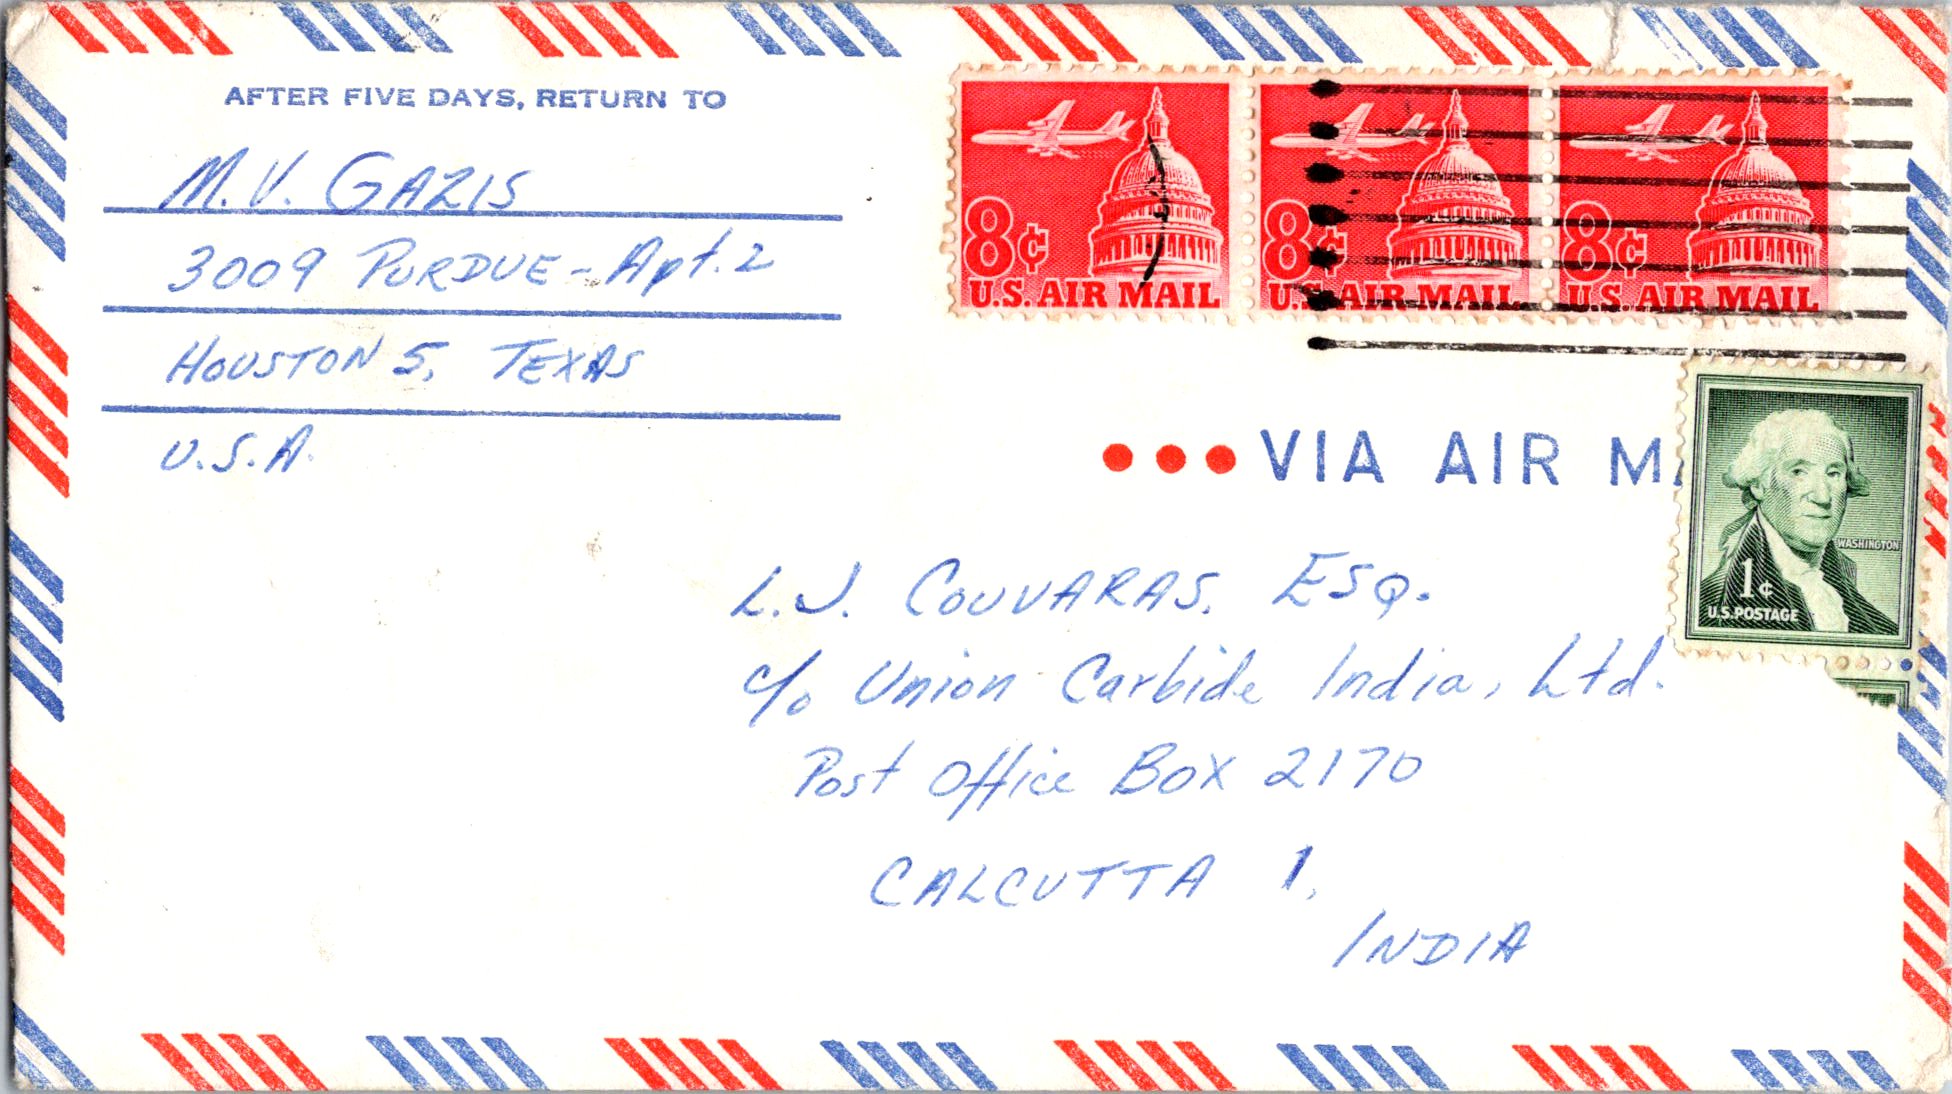 AFTER FIVE DAYS, RETURN TO
M.V. GAZIS
3009 PURDUE - Apt. 2
HOUSTON 5, TEXAS
U.S.A.
8¢
U.S. AIR MAIL
8¢
U.S. AIR MAIL
8¢
U.S. AIR MAIL
VIA AIR
WASHINGTON
1¢
U.S. POSTAGE
L.J. COUVARAS, ESQ.
c/o Union Carbide India, Ltd.
Post Office Box 2170
CALCUTTA 1,
INDIA